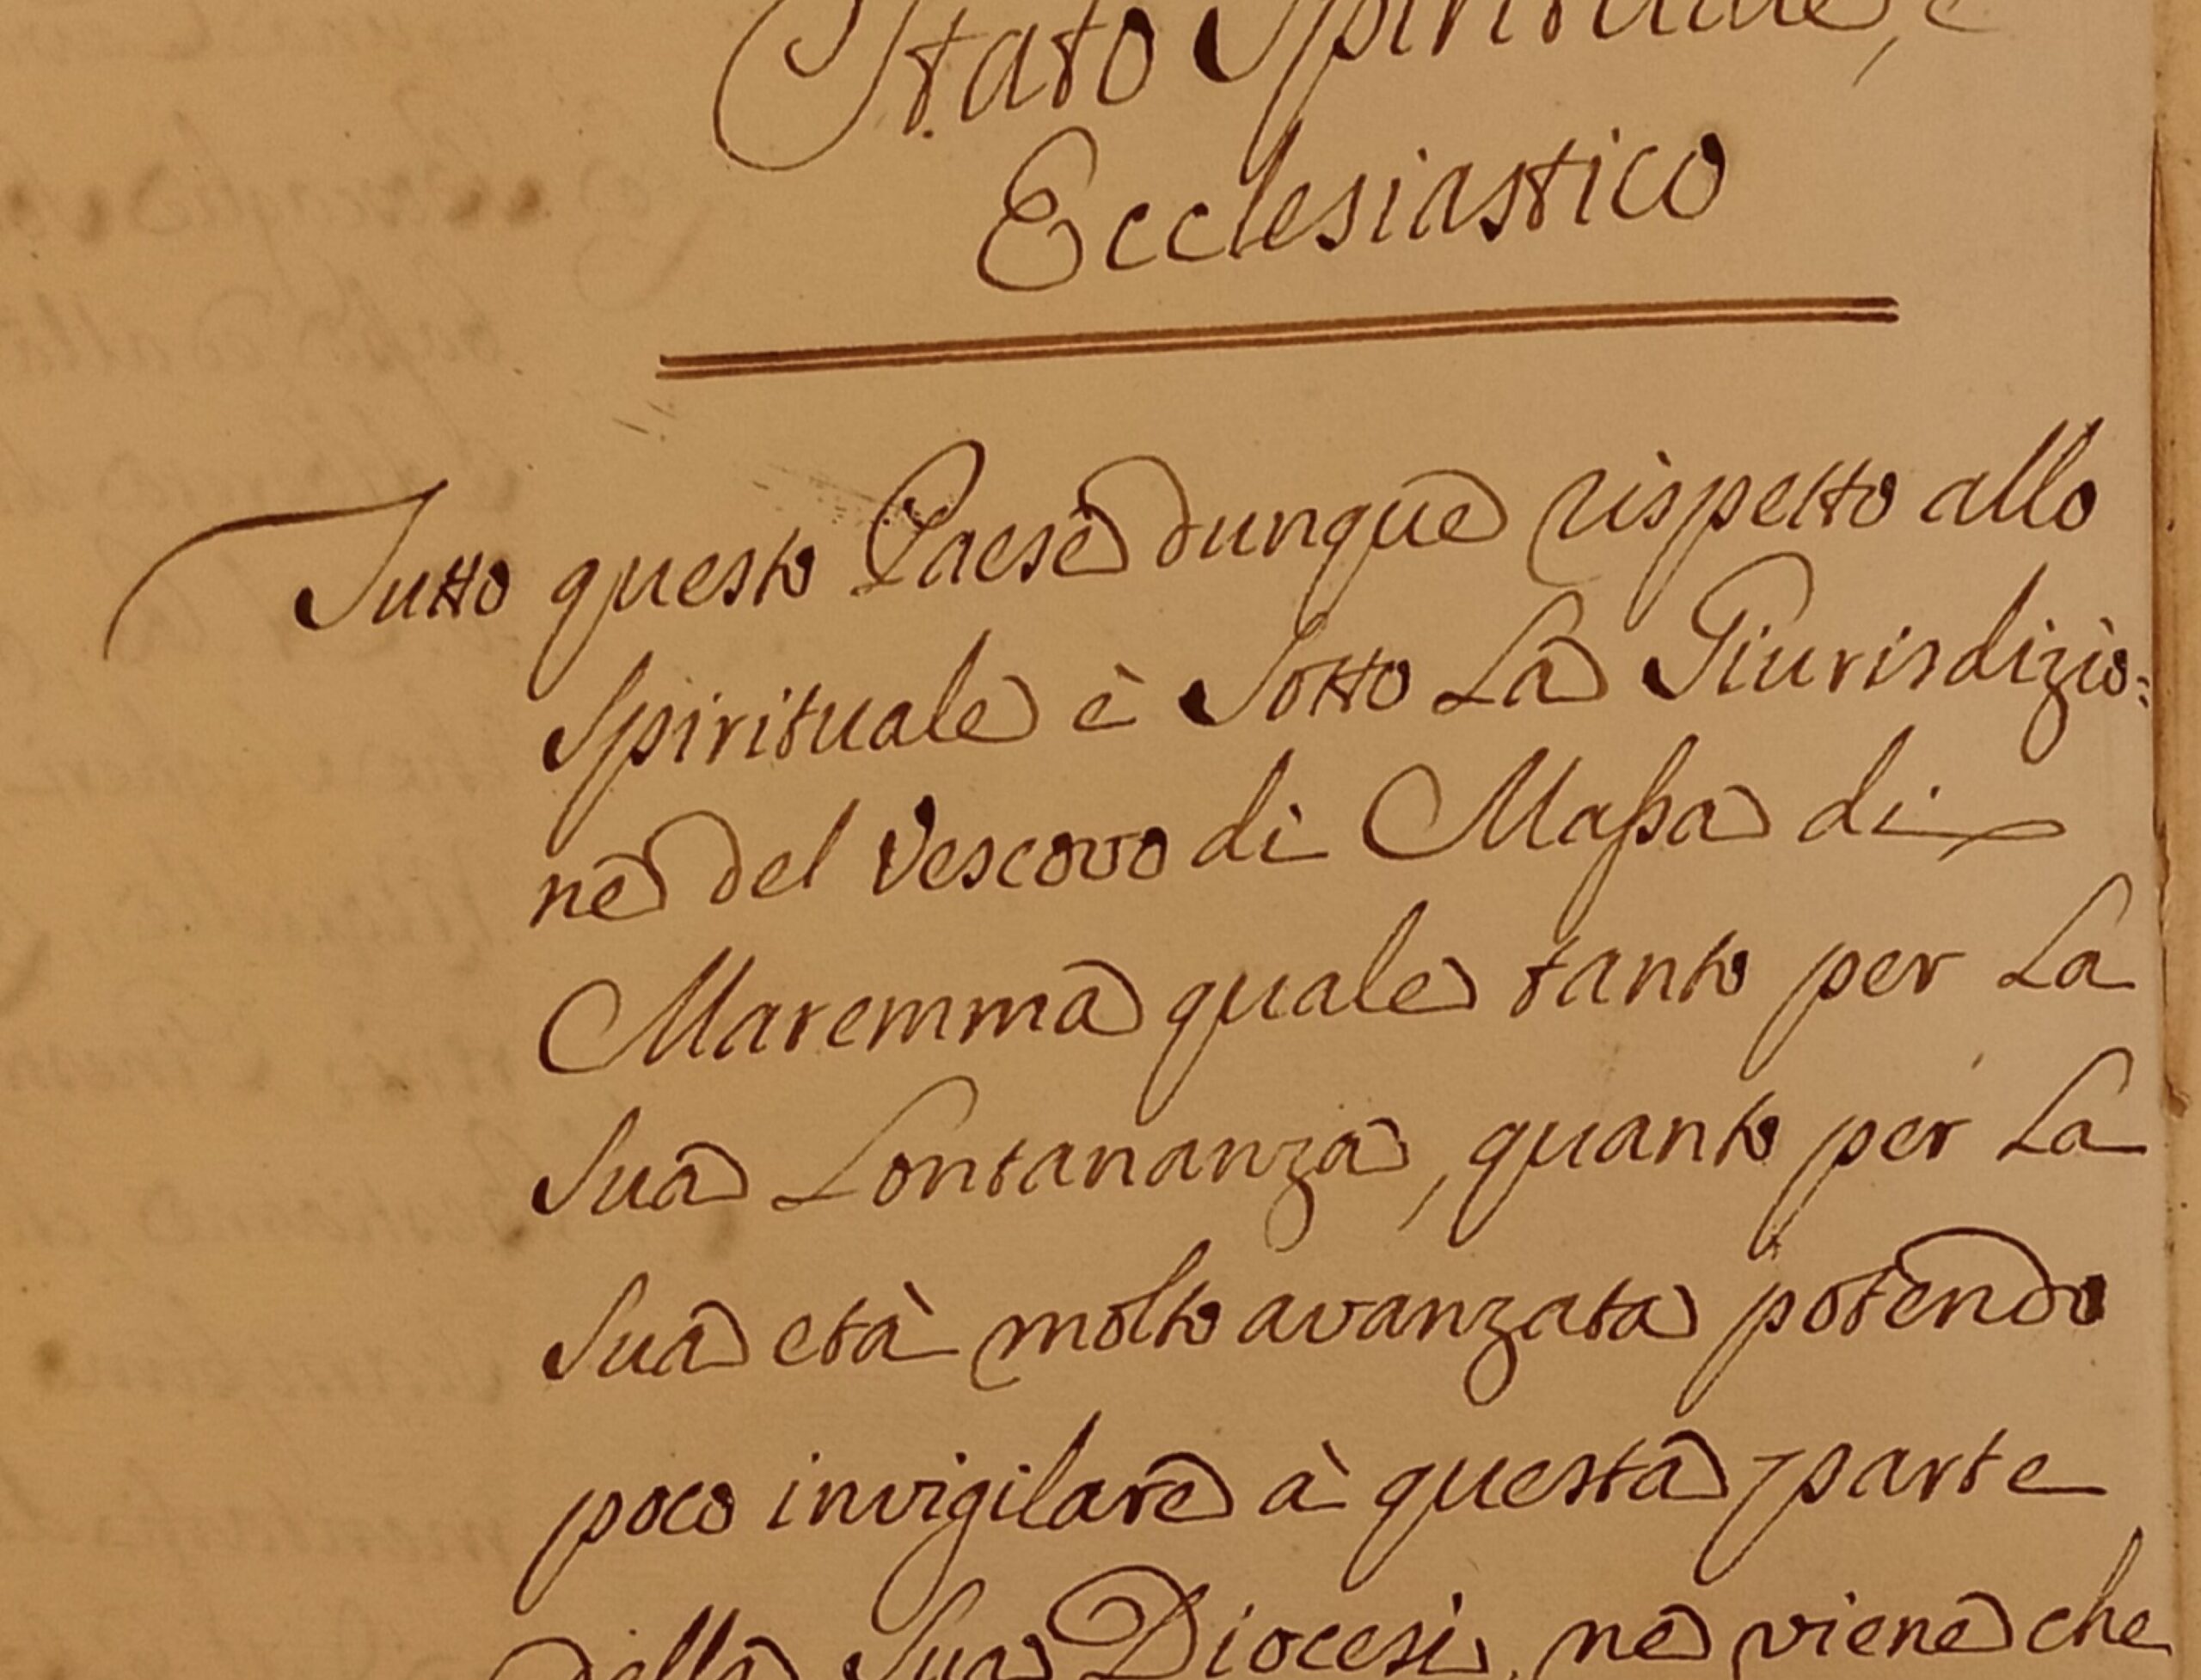 Stato Spirituale, e
Ecclesiastico
Tutto questo Paese dunque rispetto allo
Spirituale è Sotto La Giurisdizio:
ne del Vescovo di Massa di
Maremma quale tanto per La
Sua Lontananza, quanto per La
Sua età molto avanzata potendo
poco invigilare à questa parte
della Sua Diocesi, ne viene che